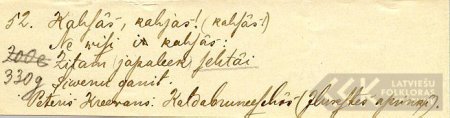 52. Kahsâs, kahjas! (kahsâs!)
Ne wisi ir kahsâs:
200e Zitam japaleek sehtâi
330g Siwenu ganit.
Peteris Kreewans. Kaldabruneeschôs (Ilukstes aprinkî).
LATVIEŠU
FOLKLORAS